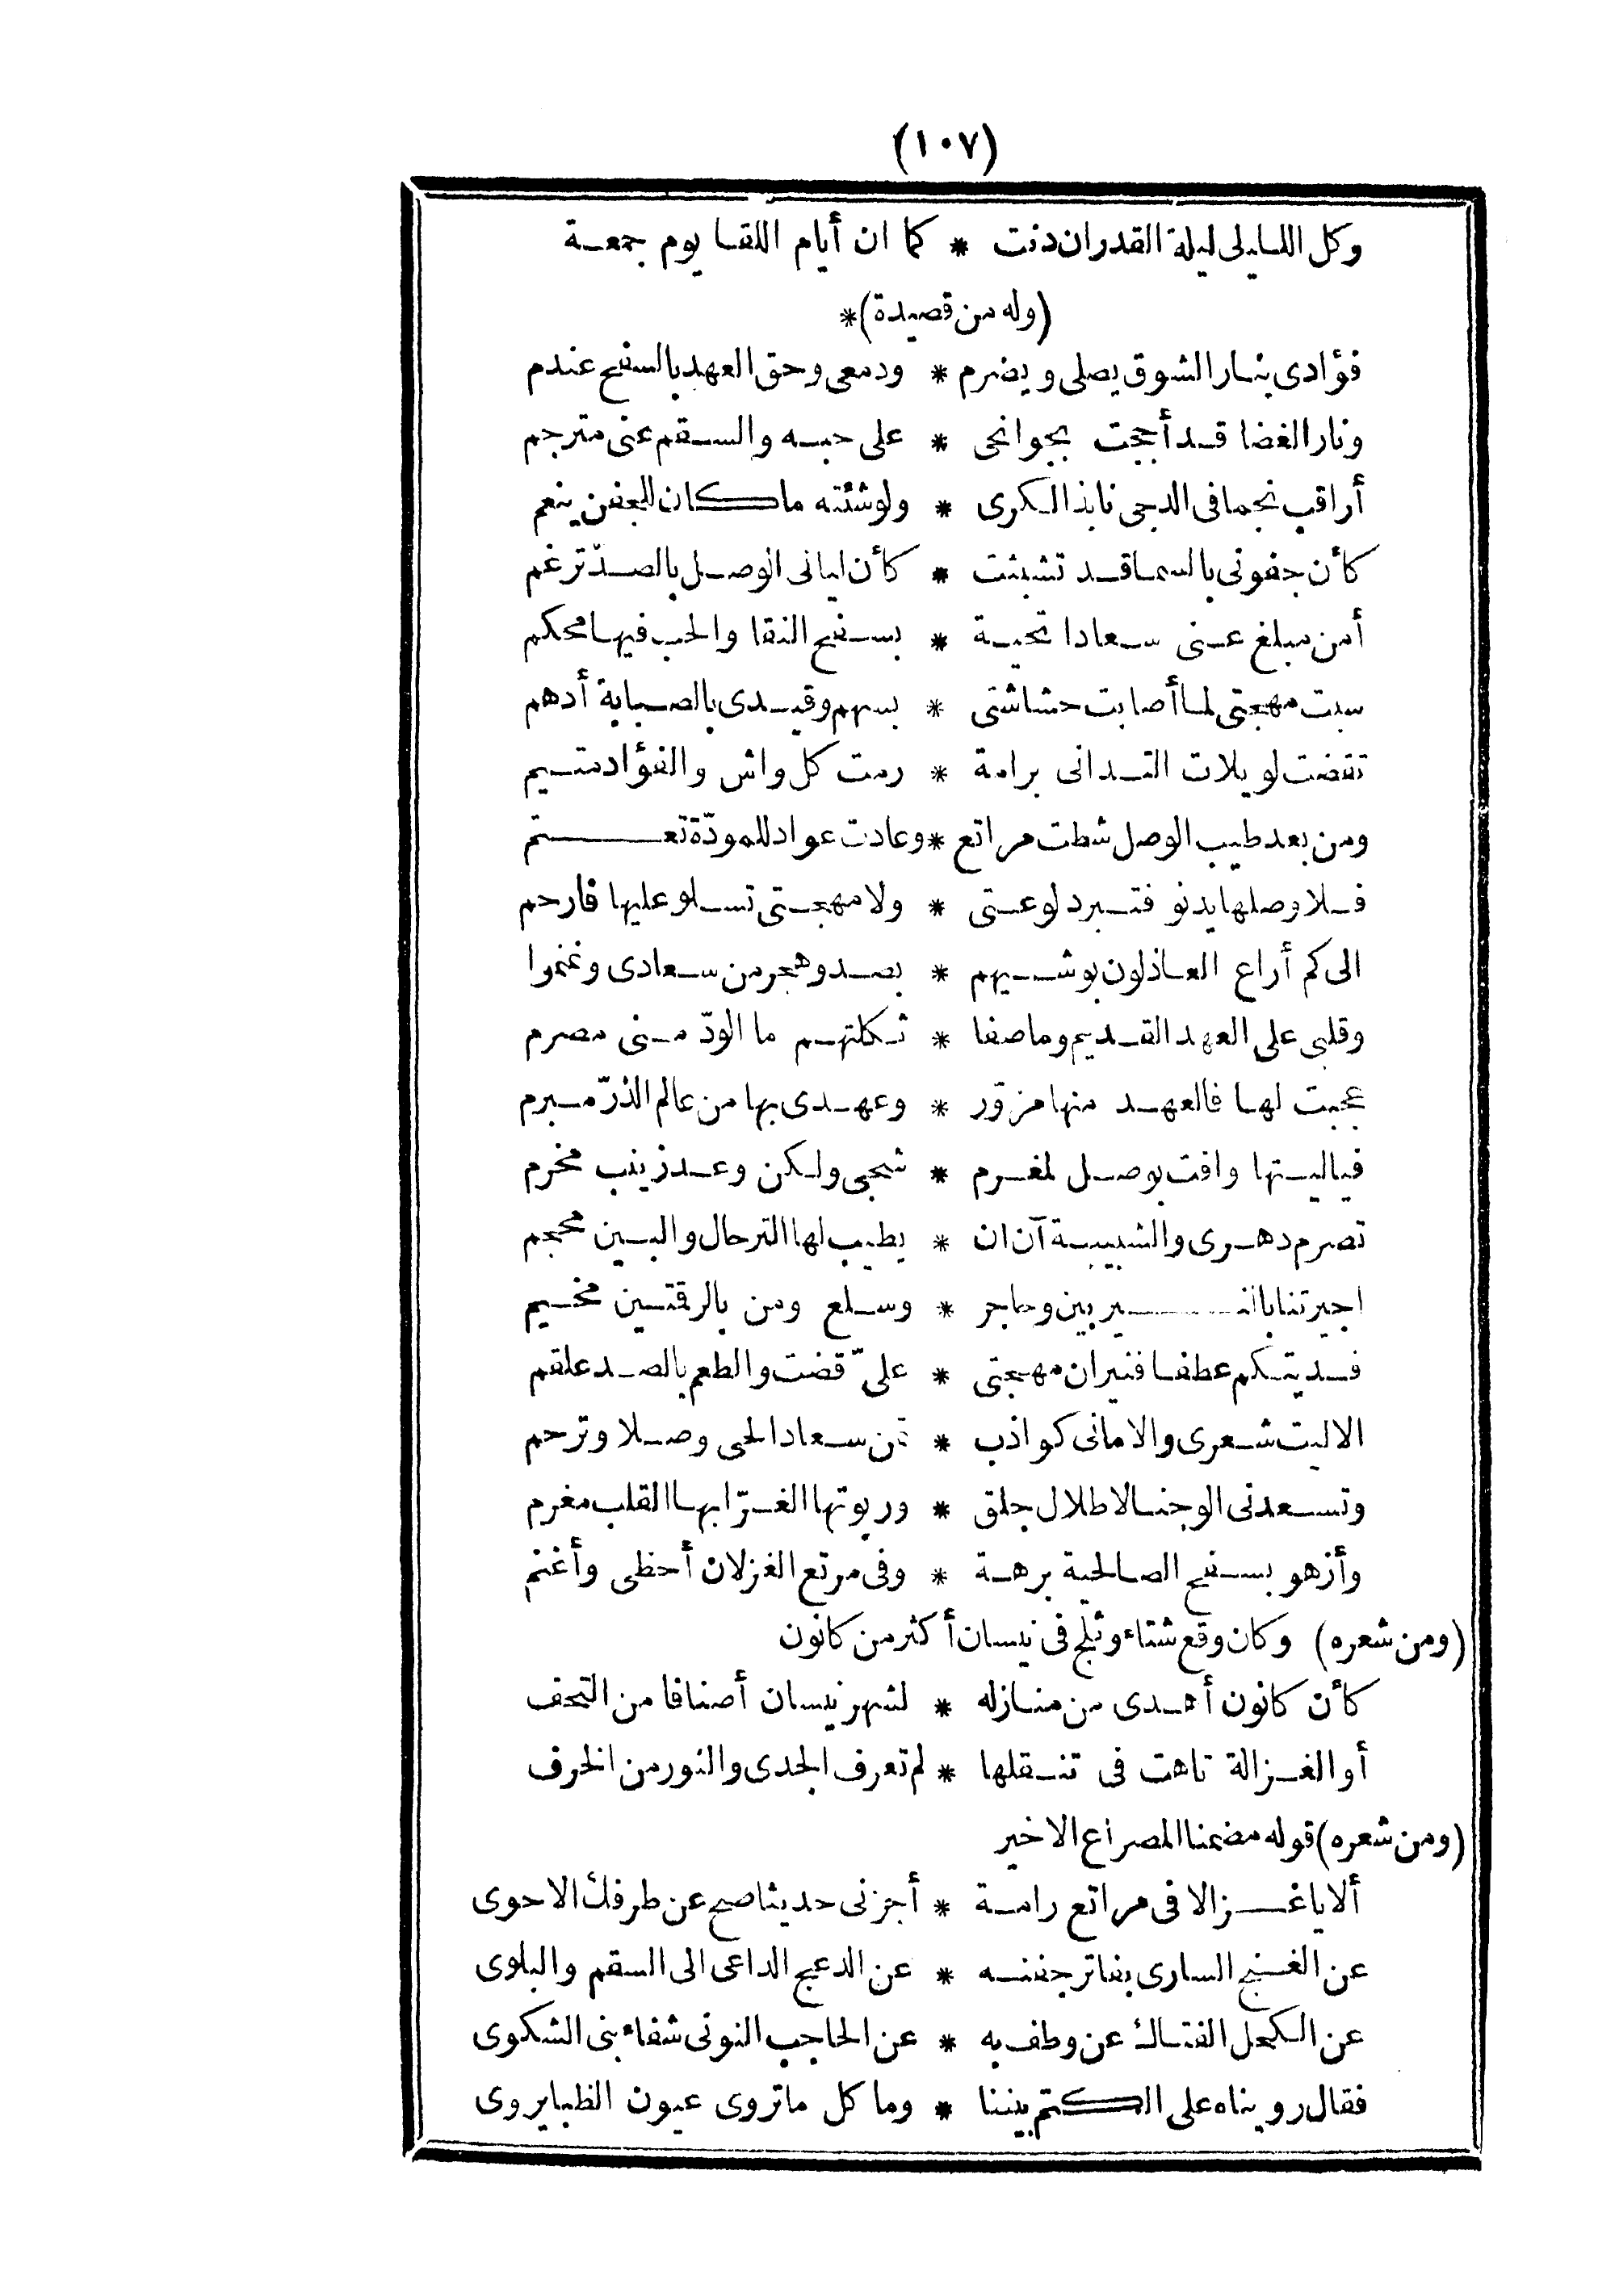 (١٠٧)
وكل الليالى ليلة القدران دنت * كما ان أيام اللقا يوم جمعة
(وله من قصيدة)*
فؤادى بنار الشوق يصلى ويضرم * ودمعى وحق العهد بالسفح عندم
ونار الغضا قد أججت بجوانحى * على حبه والسقم عنى مترجم
أراقب نجما فى الدجى نابذ الكرى * ولو شئته ما كان للجفن ينعم
كأن جفونى بالسما قد تشبثت * كأن ليالى الوصل بالصدّ ترغم
أمن مبلغ عنى سعادا تحية * بسفح النقا والحب فيها محكم
سبت مهجتى لما أصابت حشاشتى * بسهم وقيدى بالصبابة أدهم
تقضت لويلات التدانى برامة * رمت كل واش والفؤاد متيم
ومن بعد طيب الوصل شطت مراتع * وعادت عواد للمودّة تعتم
فلا وصلها يدنو فتبرد لوعتى * ولا مهجتى تسلو عليها فارحم
الى كم أراع العاذلون بوشيهم * بصد وهجر من سعادى وغنموا
وقلبى على العهد القديم وما صفا * ثكلتهم ما الودّ منى مصرم
عجبت لها فالعهد منها مزوّر * وعهدى بها من عالم الذرّ مبرم
فياليتها وافت بوصل لمغرم * شجى ولكن وعد زينب مخرم
تصرم دهرى والشبيبة آن ان * يطيب لها الترحال والبين محجم
اجيرتنا بالنيربين وحاجر * وسلع ومن بالرقتين مخيم
فديتكم عطفا فنيران مهجتى * علىّ قضت والطعم بالصد علقم
الاليت شعرى والامانى كواذب * تمن سعاد الحى وصلا وترحم
وتسعدنى الوجنا لاطلال جلق * وربوتها الغرّا بها القلب مغرم
وأزهو بسفح الصالحية برهة * وفى مرتع الغزلان أحظى وأغنم
(ومن شعره) وكان وقع شتاء وثلج فى نيسان أكثر من كانون
كأن كانون أهدى من منازله * لشهر نيسان أصنافا من التحف
أو الغزالة تاهت فى تنقلها * لم تعرف الجدى والثور من الخرف
(ومن شعره) قوله مضمنا المصراع الاخير
ألا يا غزالا فى مراتع رامة * أجزنى حديثا صح عن طرفك الاحوى
عن الغنج السارى بفاتر جفنه * عن الدعج الداعى الى السقم والبلوى
عن الكحل الفتاك عن وطف به * عن الحاجب النونى شفاء بنى الشكوى
فقال رويناه على الكتم بيننا * وما كل ما تروى عيون الظبا يروى